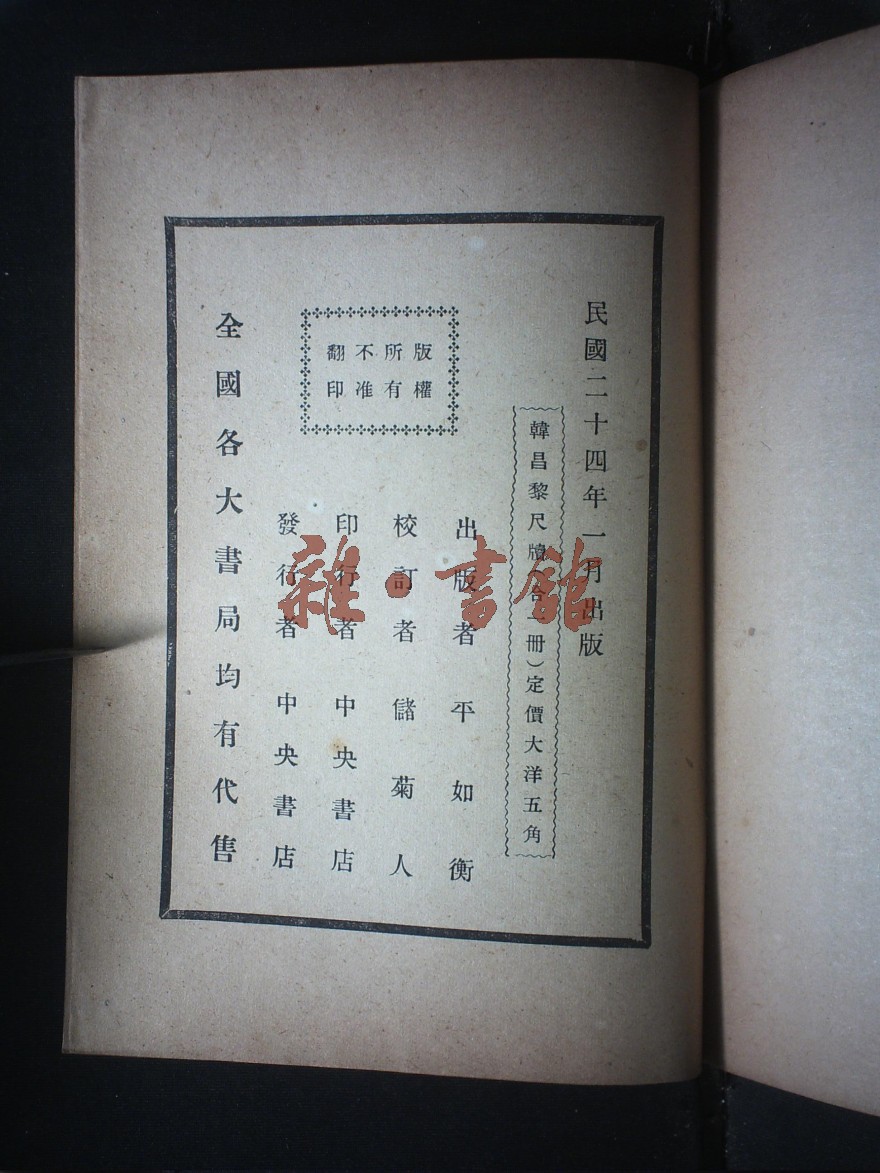 民國二十四年一月出版
韓昌黎尺牘（合一冊）定價大洋五角
版權所有不准翻印
出版者 平如衡
校訂者 儲菊人
印行者 中央書店
發行者 中央書店
全國各大書局均有代售
雜·書館